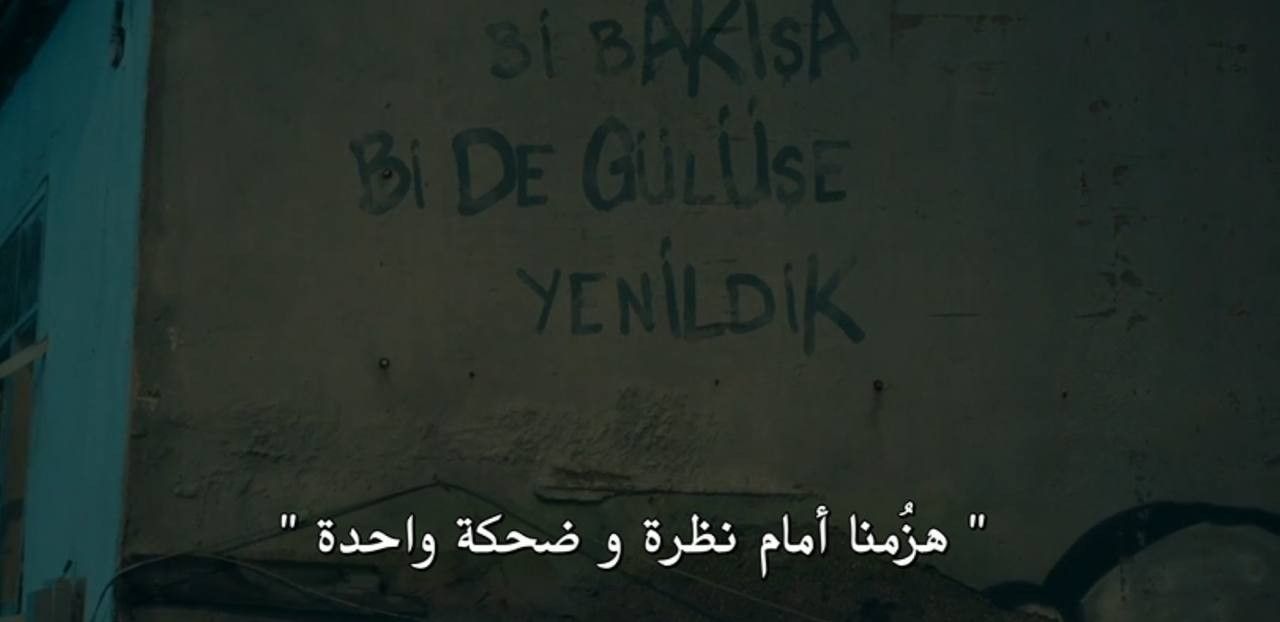 Bi BAKIŞA
Bi DE GÜLÜŞE
YENİLDİK
" هزُمنا أمام نظرة و ضحكة واحدة "